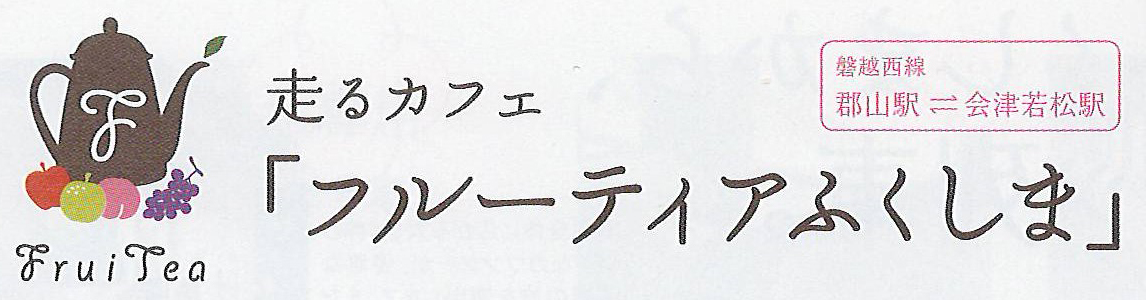 F
FruiTea
走るカフェ
磐越西線
郡山駅 ⇌ 会津若松駅
「フルーティアふくしま」